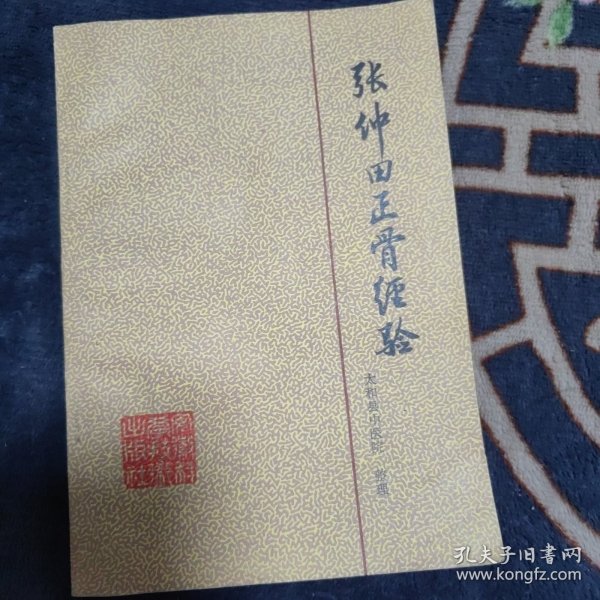 张仲田正骨经验
太和县中医院 整理
安徽科学技术出版社
孔夫子旧书网
www.kongfz.com